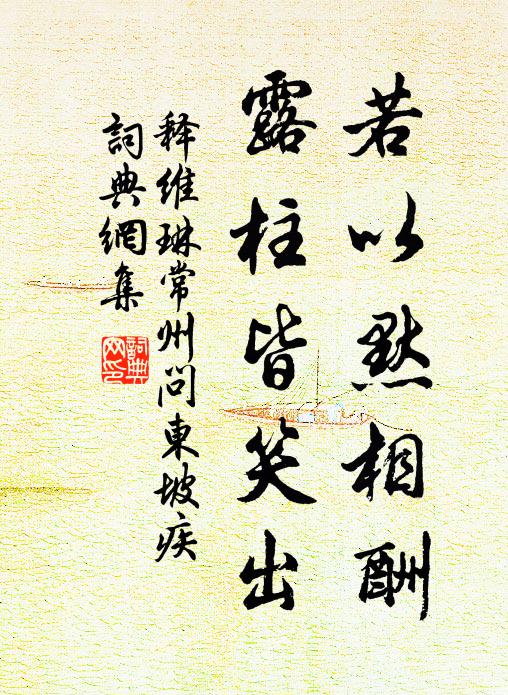 若以默相酬
露柱皆笑出
释維琳常州問東坡疾
詞典網集
詞典网印